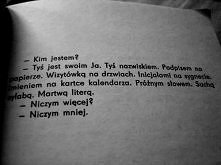 — Kim jestem?
— Tyś jest swoim Ja. Tyś nazwiskiem. Podpisem na
papierze. Wizytówką na drzwiach. Inicjałami na sygnecie.
Imieniem na kartce kalendarza. Próżnym słowem. Suchą
sylabą. Martwą literą.
— Niczym więcej?
— Niczym mniej.